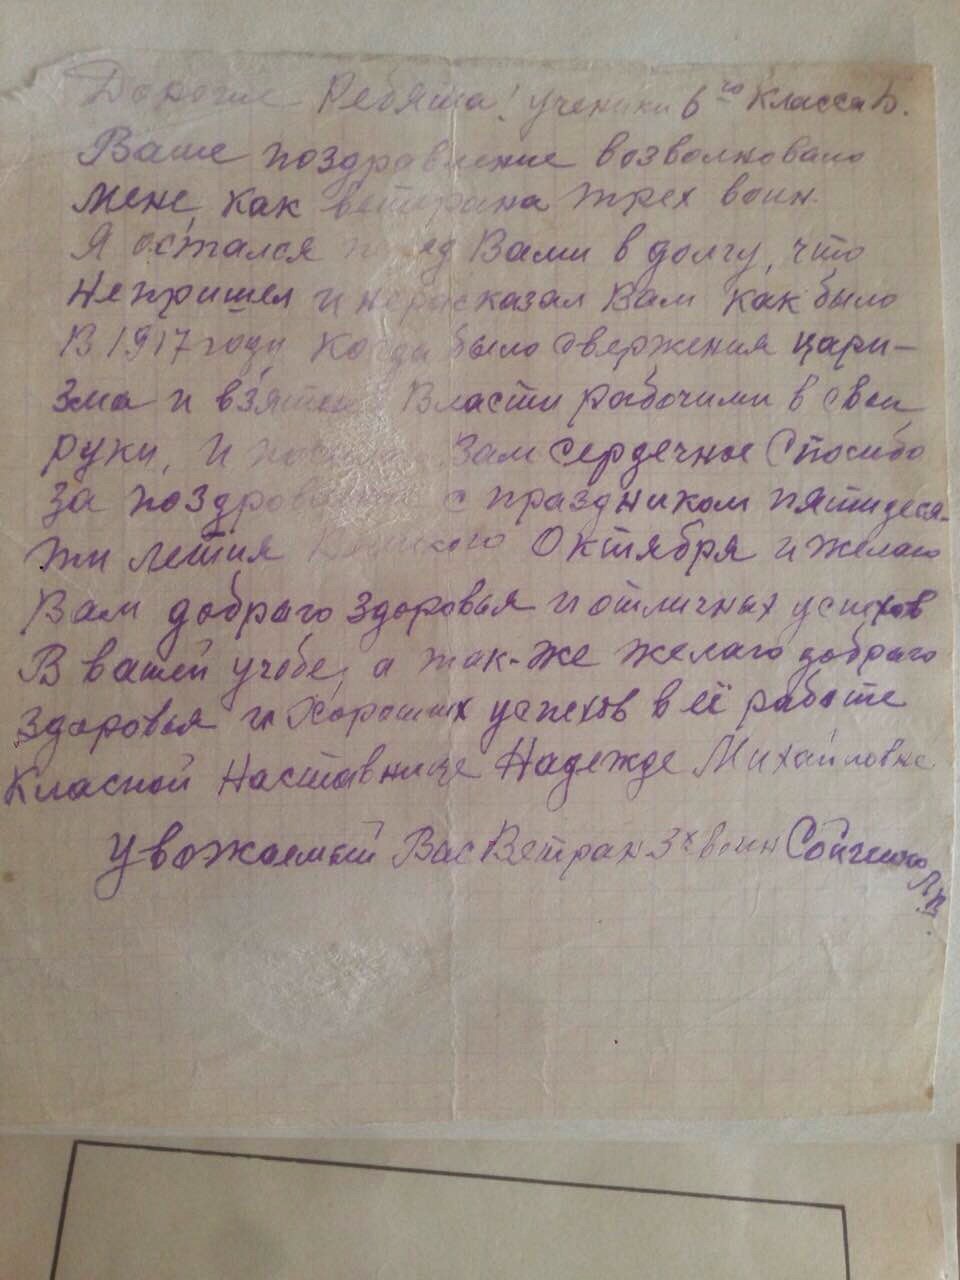 Дорогие Ребята! ученики 6го Класса Б.
Ваше поздравление возволновало
мене, как ветерана трех воин.
Я остался перед Вами в долгу, что
непришел и нерасказал Вам как было
В 1917 году, когда было свержения цари-
зма и взятие Власти рабочими в свои
руки, и Вам сердечное Спосибо
за поздровления с праздником пятидеся-
ти летия Великого Октября и желаю
Вам доброго здоровья и отличных успехов
В вашей учебе, а так-же желаю доброго
здоровья и Хороших успехов в её работе
Класной Наставнице Надежде Михайловне
Увожаемый Вас Ветран 3х воин